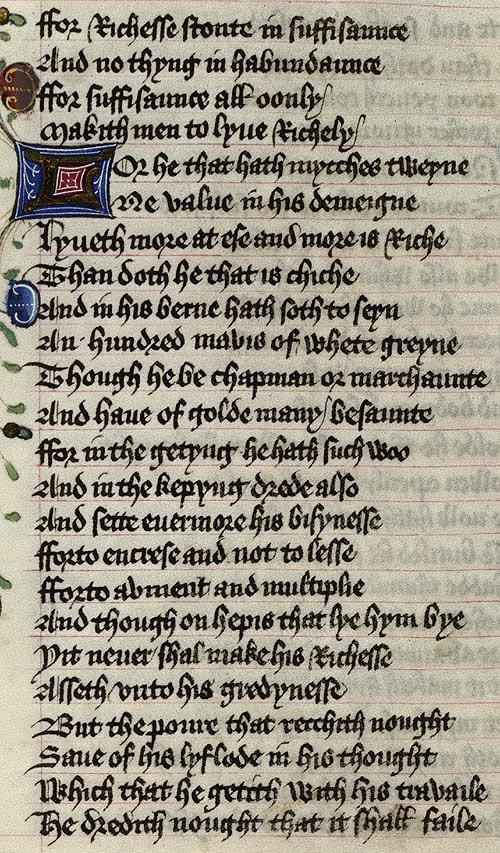 ffor Richesse stonte in suffisaunce
And no thyng in habundaunce
ffor suffisaunce all oonly/
Makith men to lyue Richely/
For he that hath mycches tweyne
Ne value in his demeigne
Lyueth more at ese and more is Riche
Than doth he that is chiche
And in his berne hath soth to seyn
An hundred mavis of whete greyne
Though he be chapman or marchaunte
And haue of golde many/ besaunte
ffor in the getyng he hath such woo
And in the kepyng drede also
And sette euermore his bisynesse
fforto encrese and not to lesse
fforto avment and multiplie
And though on hepis that lye hym bye
Yit neuer shal make his Richesse
Asseth vnto his gredynesse
But the poure that recchith nought
Saue of his lyflode in his thought
Which that he getith with his travaile
He dredith nought that it shall faile